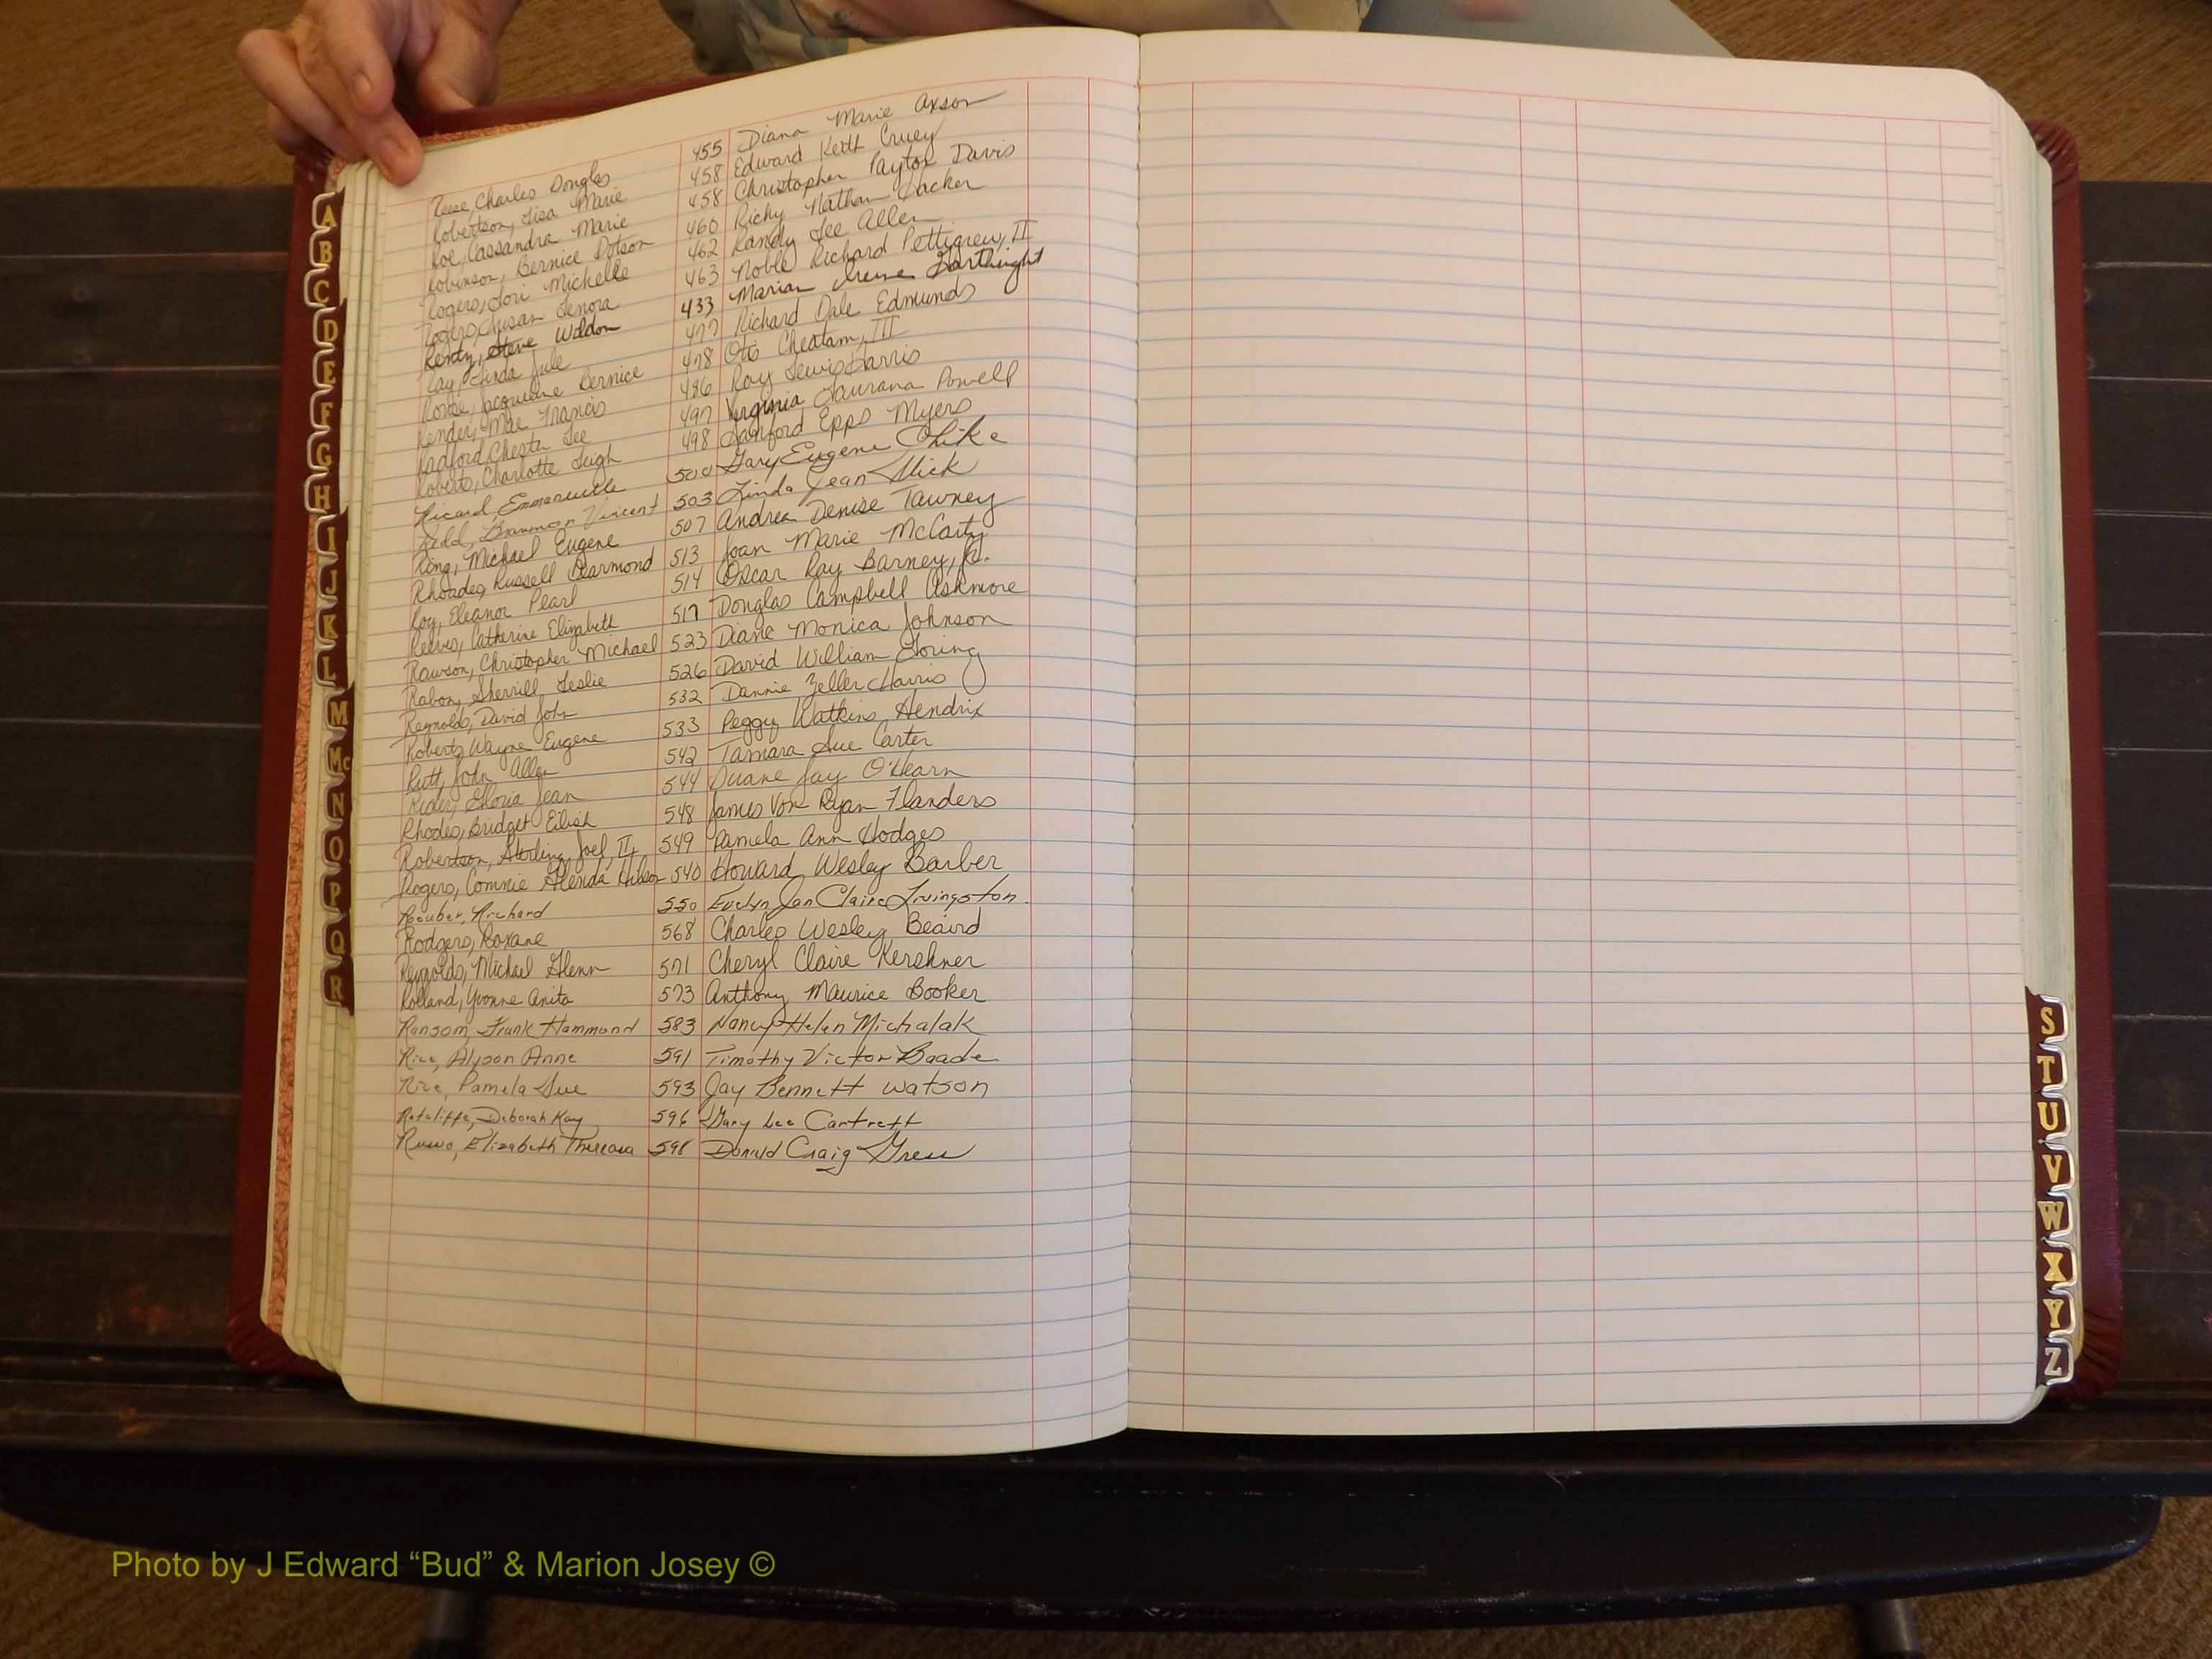 Reese, Charles Douglas 455 Diana Marie Axson
Robertson, Lisa Marie 458 Edward Keith Cruey
Roe, Cassandra Marie 458 Christopher Paytor Davis
Robinson, Bernice Dotson 460 Ricky Nathan Hacker
Rogers, Lori Michelle 462 Randy Lee Allen
Rogers, Susan Lenora 463 Noble Richard Pettigrew, II
Renty, Steve Weldon 433 Marian Irene
Ray, Linda Jule 477 Richard Dale Edmunds
Jacqueline Bernice 478 Otis Cheatam, III
Render, Mae Francis 486 Roy Lewis Harris
Radford, Chester Lee 497 Virginia Laurana Powell
Roberts, Charlotte Leigh 498 Sanford Epps Myers
Ricard, Emmanuelle 500 Gary Eugene
Vincent 503 Linda Jean Slick
Ring, Michael Eugene 507 Andrea Denise Tawney
Rhoades, Russell Dearmond 513 Joan Marie McCarty
Roy, Eleanor Pearl 514 Oscar Ray Barney, Jr.
Reeves, Catherine Elizabeth 517 Douglas Campbell Ashmore
Rawson, Christopher Michael 523 Diane Monica Johnson
Rabon, Sherrill Leslie 526 David William Loring
Reynolds, David John 532 Dannie Zeller Harris
Roberts, Wayne Eugene 533 Peggy Watkins Hendrix
Rutt, John Allen 542 Tamara Sue Carter
Rider, Gloria Jean 544 Duane Jay O'Hearn
Rhodes, Bridget Eilish 548 James Von Ryan Flanders
Robertson, Sterling Joel, II 549 Pamela Ann Hodges
Rogers, Connie Glenda 540 Howard Wesley Barber
Richard 550 Evelyn Jan Claire Livingston
Rodgers, Roxane 568 Charles Wesley Beaird
Reynolds, Michael Glenn 571 Cheryl Claire Kershner
Rolland, Yvonne Anita 573 Anthony Maurice Booker
Ransom, Frank Hammond 583 Nancy Helen Michalak
Rice, Alyson Anne 591 Timothy Victor Baade
Rice, Pamela Sue 593 Jay Bennett Watson
Ratcliffe, Deborah Kay 596 Gary Lee Cartrett
Russo, Elizabeth Theresa 598 Donald Craig Grew
A
B
C
D
E
F
G
H
I
J
K
L
M
Mc
N
O
P
Q
R
S
T
U
V
W
X
Y
Z
Photo by J Edward “Bud” & Marion Josey ©